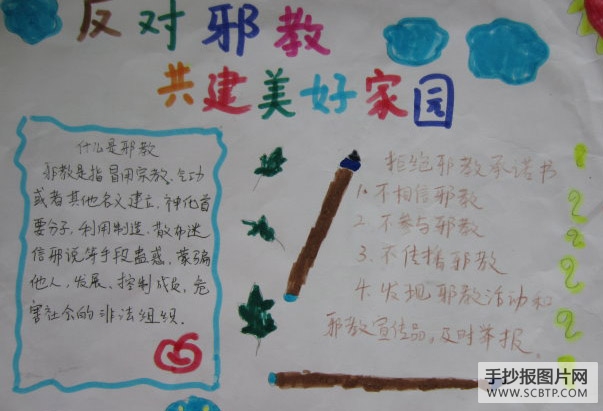 反对邪教
共建美好家园
什么是邪教
邪教是指冒用宗教、气功
或者其他名义建立,神化首
要分子,利用制造、散布迷
信邪说等手段蛊惑、蒙骗
他人,发展、控制成员,危
害社会的非法组织.
拒绝邪教承诺书
1.不相信邪教
2.不参与邪教
3.不传播邪教
4.发现邪教活动和
邪教宣传品,及时举报。
手抄报图片网
WWW.SCBTP.COM